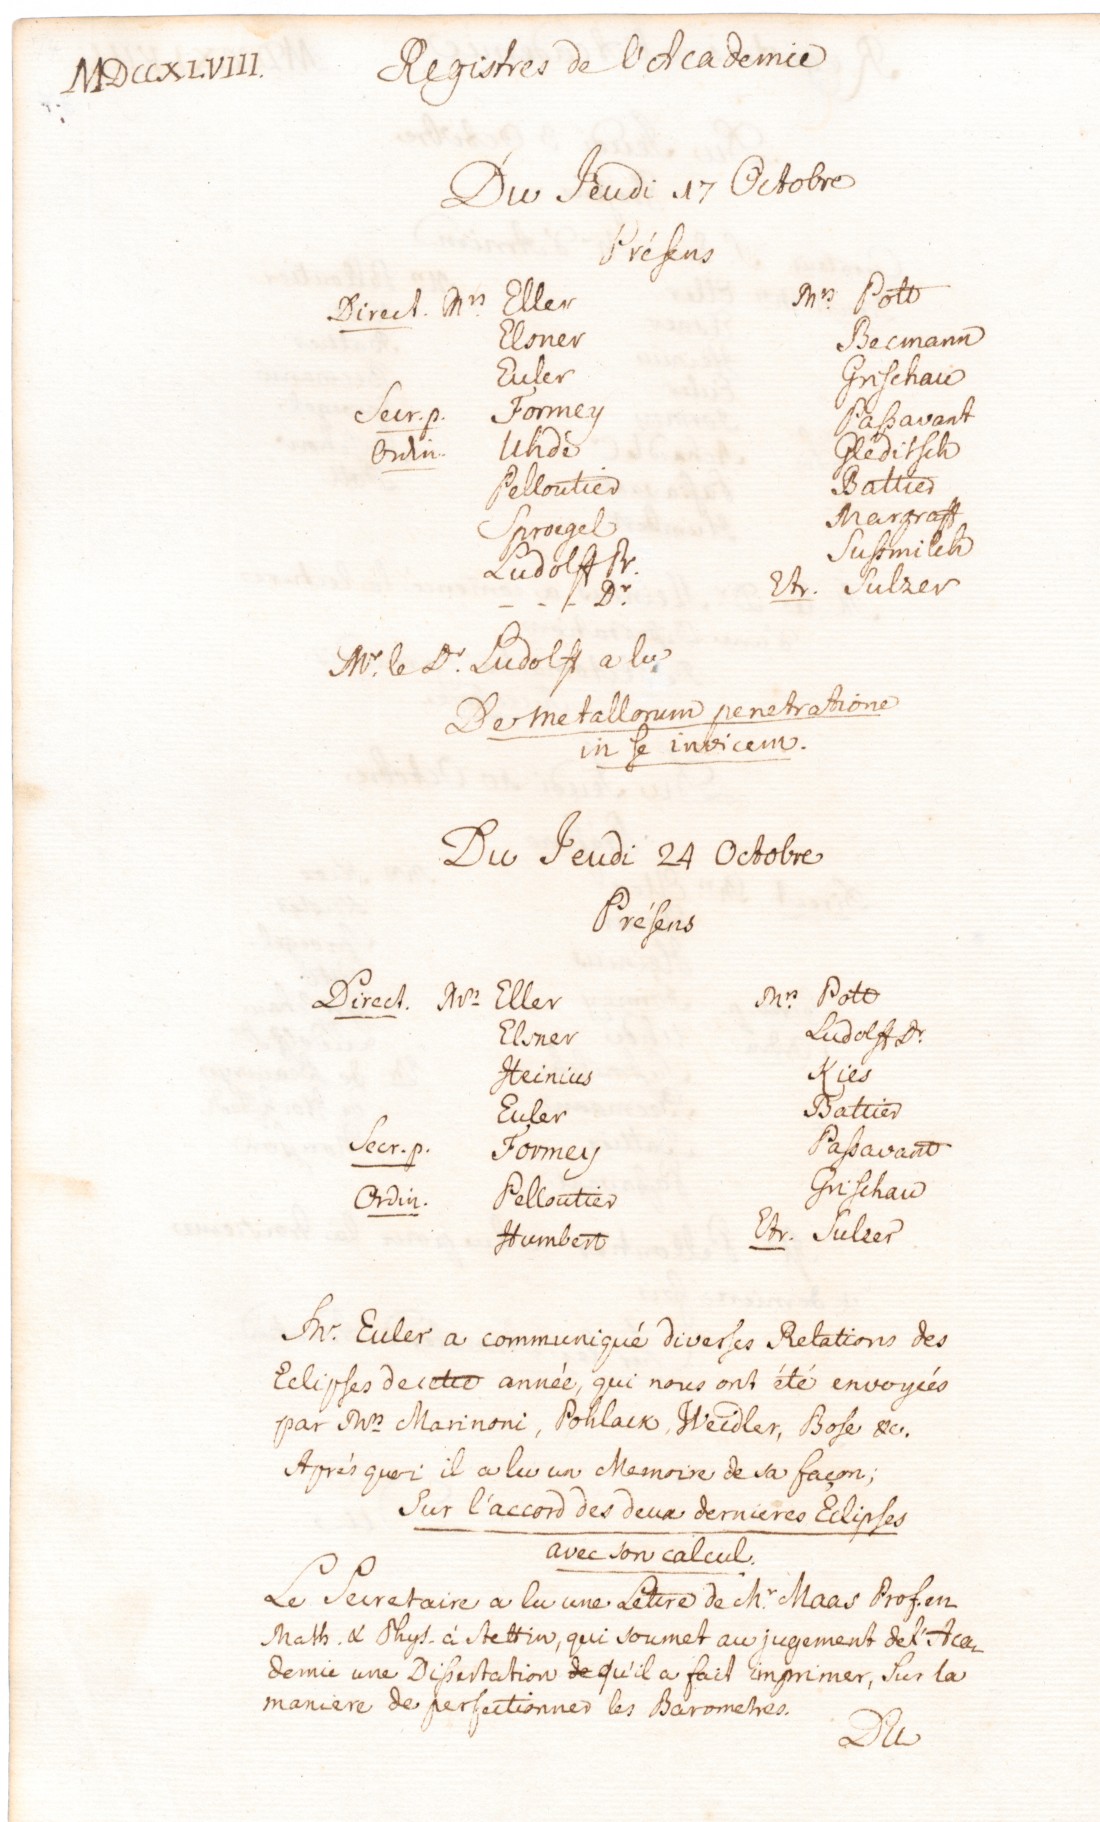 MDCCXLVIII.
Registres de l'Academie
Du Jeudi 17 Octobre
Présens
Direct. Mrs Eller
Elsner
Euler
Secr. p. Formey
Ordin. Uhde
Pelloutier
Sproegel
Ludolff Pr.
- - - Dr.
Mrs Pott
Becmann
Grischau
Passavant
Gleditsch
Battier
Margraff
Sussmilch
Etr. Sulzer
Mr. le Dr. Ludolff a lu
De metallorum penetratione
in se invicem.
Du Jeudi 24 Octobre
Présens
Direct. Mrs Eller
Elsner
Heinius
Euler
Secr. p. Formey
Ordin. Pelloutier
Humbert
Mrs Pott
Ludolff Dr.
Kies
Battier
Passavant
Grischau
Etr. Sulzer
Mr. Euler a communiqué diverses Relations des
Eclipses de cette année, qui nous ont été envoyées
par Mrs Marinoni, Pohlack, Weidler, Bose &c.
Après quoi il a lu un Memoire de sa façon;
Sur l'accord des deux dernieres Eclipses
avec son calcul.
Le Secretaire a lu une Lettre de Mr Maas Prof. en
Math. & Phys. à Stettin, qui soumet au jugement de l'Aca-
demie une Dissertation de qu'il a fait imprimer, sur la
maniere de perfectionner les Barometres.
Du